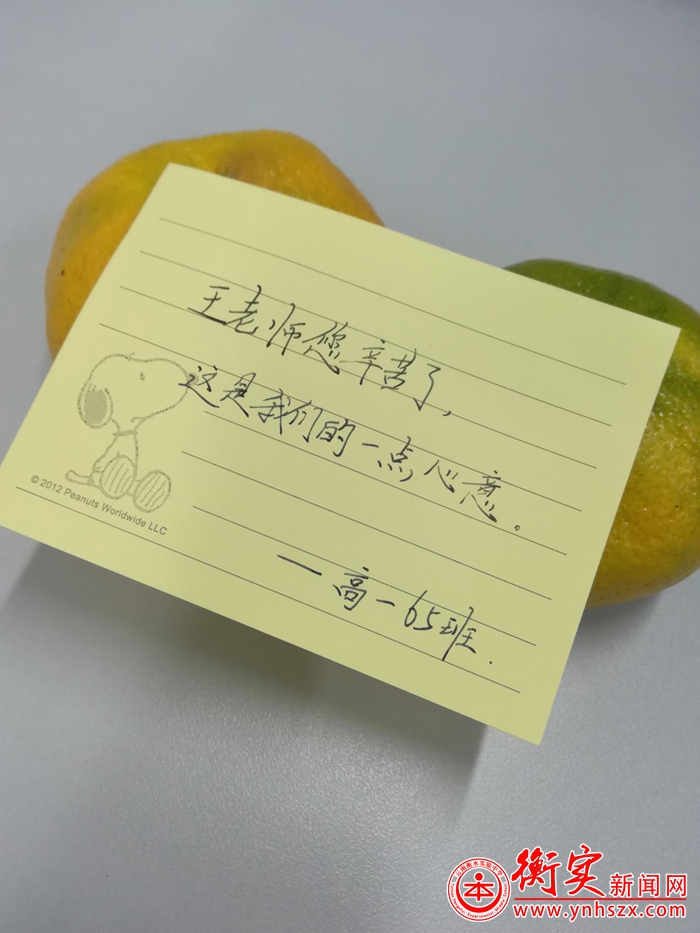 王老师您辛苦了,
这是我们的一点心意。
一高一65班.
© 2012 Peanuts Worldwide LLC
衡实新闻网
www.ynhszx.com